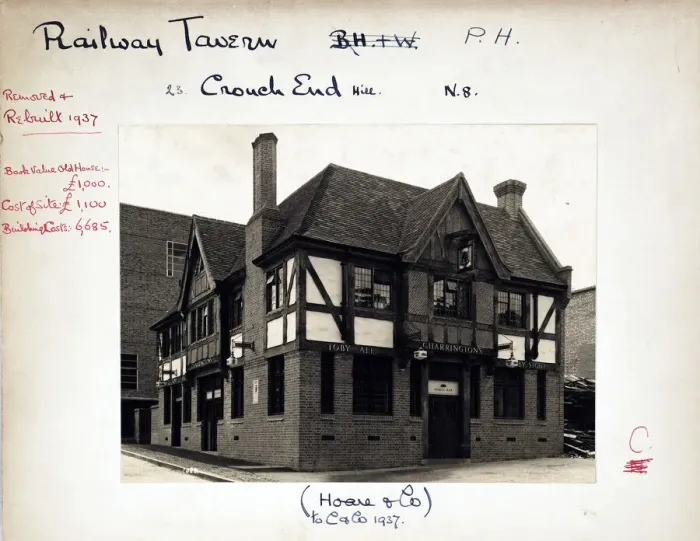 Railway Tavern B.H.+W. P.H.
23. Crouch End Hill. N.8.
Removed &
Rebuilt 1937
Book Value Old House:-
£1,000.
Cost of Site:- £1,100
Building Costs:- 6,685.
TOBY ALE
CHARRINGTONS
CHARRINGTONS
C
(Hoare & Co)
to C & Co 1937.